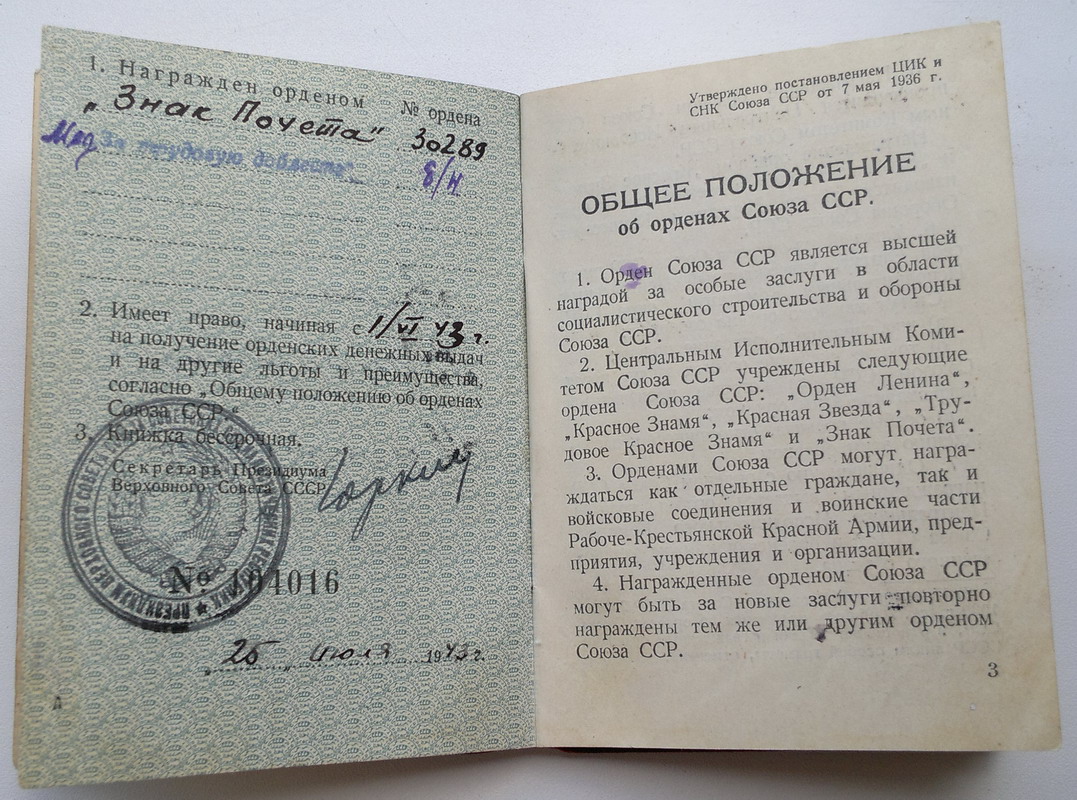 1. Награжден орденом № ордена
„Знак Почета“ 30289
Мед „За трудовую доблесть“ б/н
2. Имеет право, начиная с 1/VI 43 г.
на получение орденских денежных выдач
и на другие льготы и преимущества,
согласно „Общему положению об орденах
Союза ССР.“
3. Книжка бессрочная.
Секретарь Президиума
Верховного Совета СССР
Горкин
№ 104016
„25 „ июля 1943 г.
Утверждено постановлением ЦИК и
СНК Союза ССР от 7 мая 1936 г.
ОБЩЕЕ ПОЛОЖЕНИЕ
об орденах Союза ССР.
1. Орден Союза ССР является высшей
наградой за особые заслуги в области
социалистического строительства и обороны
Союза ССР.
2. Центральным Исполнительным Коми-
тетом Союза ССР учреждены следующие
ордена Союза ССР: „Орден Ленина“,
„Красное Знамя“, „Красная Звезда“, „Тру-
довое Красное Знамя“ и „Знак Почета“.
3. Орденами Союза ССР могут награ-
ждаться как отдельные граждане, так и
войсковые соединения и воинские части
Рабоче-Крестьянской Красной Армии, пред-
приятия, учреждения и организации.
4. Награжденные орденом Союза ССР
могут быть за новые заслуги повторно
награждены тем же или другим орденом
Союза ССР.
3